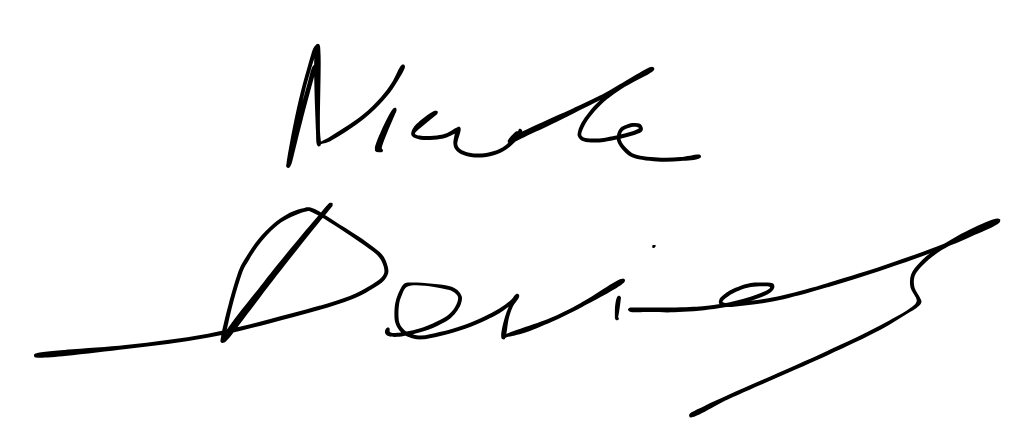 Nicole
Davies